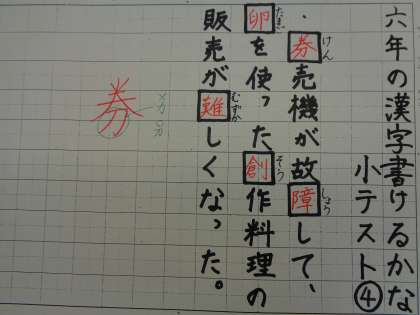 六年の漢字書けるかな
小テスト④
・券売機が故障して、
けん
しょう
卵を使った創作料理の
たまご
そう
販売が難しくなった。
むずか
券
×刀
○力